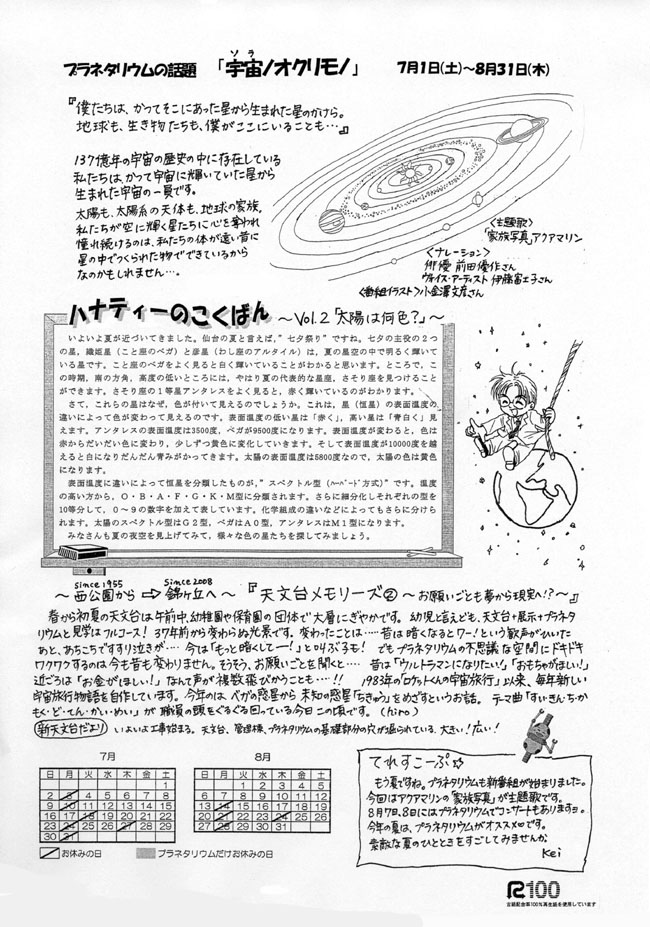 ソラ
プラネタリウムの話題 「宇宙ノオクリモノ」 7月1日(土)~8月31日(木)
『僕たちは、かつてそこにあった星から生まれた星のかけら。
地球も、生き物たちも、僕がここにいることも…』
137億年の宇宙の歴史の中に存在している
私たちは、かつて宇宙に輝いていた星から
生まれた宇宙の一員です。
太陽も、太陽系の天体も、地球の家族。
私たちが空に輝く星たちに心を奪われ
憧れ続けるのは、私たちの体が遠い昔に
星の中でつくられた物でできているから
なのかもしれません…。
<主題歌>
「家族写真」アクアマリン
<ナレーション>
俳優 前田優作さん
ヴォイス・アーティスト 伊藤富士子さん
<番組イラスト>小金澤文彦さん
ハナティーのこくばん ~Vol.2「太陽は何色?」~
いよいよ夏が近づいてきました。仙台の夏と言えば,”七夕祭り”ですね。七夕の主役の2つ
の星,織姫星(こと座のベガ)と彦星(わし座のアルタイル)は,夏の星空の中で明るく輝いて
いる星です。こと座のベガをよく見ると白く輝いていることがわかると思います。ところで,こ
の時期,南の方角,高度の低いところには,やはり夏の代表的な星座,さそり座を見つけることが
できます。さそり座の1等星アンタレスをよく見ると,赤く輝いているのがわかります。
さて,これらの星はなぜ,色が付いて見えるのでしょうか。これは,星(恒星)の表面温度の
違いによって色が変わって見えるのです。表面温度の低い星は「赤く」,高い星は「青白く」見
えます。アンタレスの表面温度は3500度,ベガが9500度になります。表面温度が変わると,色は
赤からだいだい色に変わり,少しずつ黄色に変化していきます。そして表面温度が10000度を越
えると白になりだんだん青みがかってきます。太陽の表面温度は5800度なので,太陽の色は黄色
になります。
表面温度に違いによって恒星を分類したものが,”スペクトル型(ハーバード方式)”です。温度
の高い方から,O・B・A・F・G・K・M型に分類されます。さらに細分化しそれぞれの型を
10等分して,0~9の数字を加えて表しています。化学組成の違いなどによってもさらに分けら
れます。太陽のスペクトル型はG2型,ベガはA0型,アンタレスはM1型になります。
みなさんも夏の夜空を見上げてみて,様々な色の星たちを探してみましょう。
since 1955 since 2008
~西公園から⇨錦ヶ丘へ~『天文台メモリーズ② ~お願いごとも夢から現実へ!?~』
春から初夏の天文台は午前中、幼稚園や保育園の団体で大層にぎやかです。幼児と言えども、天文台+展示+プラネタ
リウムと見学はフルコース! 37年前から変わらぬ光景です。変わったことは……昔は暗くなるとワー!という歓声がひいた
あと、あちこちですすり泣きが… 今は「もっと暗くしてー!」と叫ぶ子も! でもプラネタリウムの不思議な空間にドキドキ
ワクワクするのは今も昔も変わりません。そうそう、お願いごとを聞くと…… 昔は「ウルトラマンになりたい!」「おもちゃがほしい!」
近ごろは「お金がほしい!」なんて声が複数飛びかうことも……!! 1983年の「ロケットくんの宇宙旅行」以来、毎年新しい
宇宙旅行物語を自作しています。今年のは、ベガの惑星から未知の惑星「ちきゅう」をめざすというお話。テーマ曲「すい・きん・ち・か・
もく・ど・てん・かい・めい」が職員の頭をぐるぐる回っている今日この頃です。(hiro)
新天文台だより いよいよ工事始まる。天文台、管理棟、プラネタリウムの基礎部分の穴が掘られている。大きい!広い!
7月
日 月 火 水 木 金 土
1
2 3 4 5 6 7 8
9 10 11 12 13 14 15
16 17 18 19 20 21 22
23 24 25 26 27 28 29
30 31
8月
日 月 火 水 木 金 土
1 2 3 4 5
6 7 8 9 10 11 12
13 14 15 16 17 18 19
20 21 22 23 24 25 26
27 28 29 30 31
お休みの日 プラネタリウムだけお休みの日
てれすこーぷ☆
もう夏ですね。プラネタリウムも新番組が始まりました。
今回はアクアマリンの「家族写真」が主題歌です。
8月7日、8日にはプラネタリウムでコンサートもありますヨ。
今年の夏は、プラネタリウムがオススメです。
素敵な夏のひとときをすごしてみませんか。
Kei
R100
古紙配合率100%再生紙を使用しています